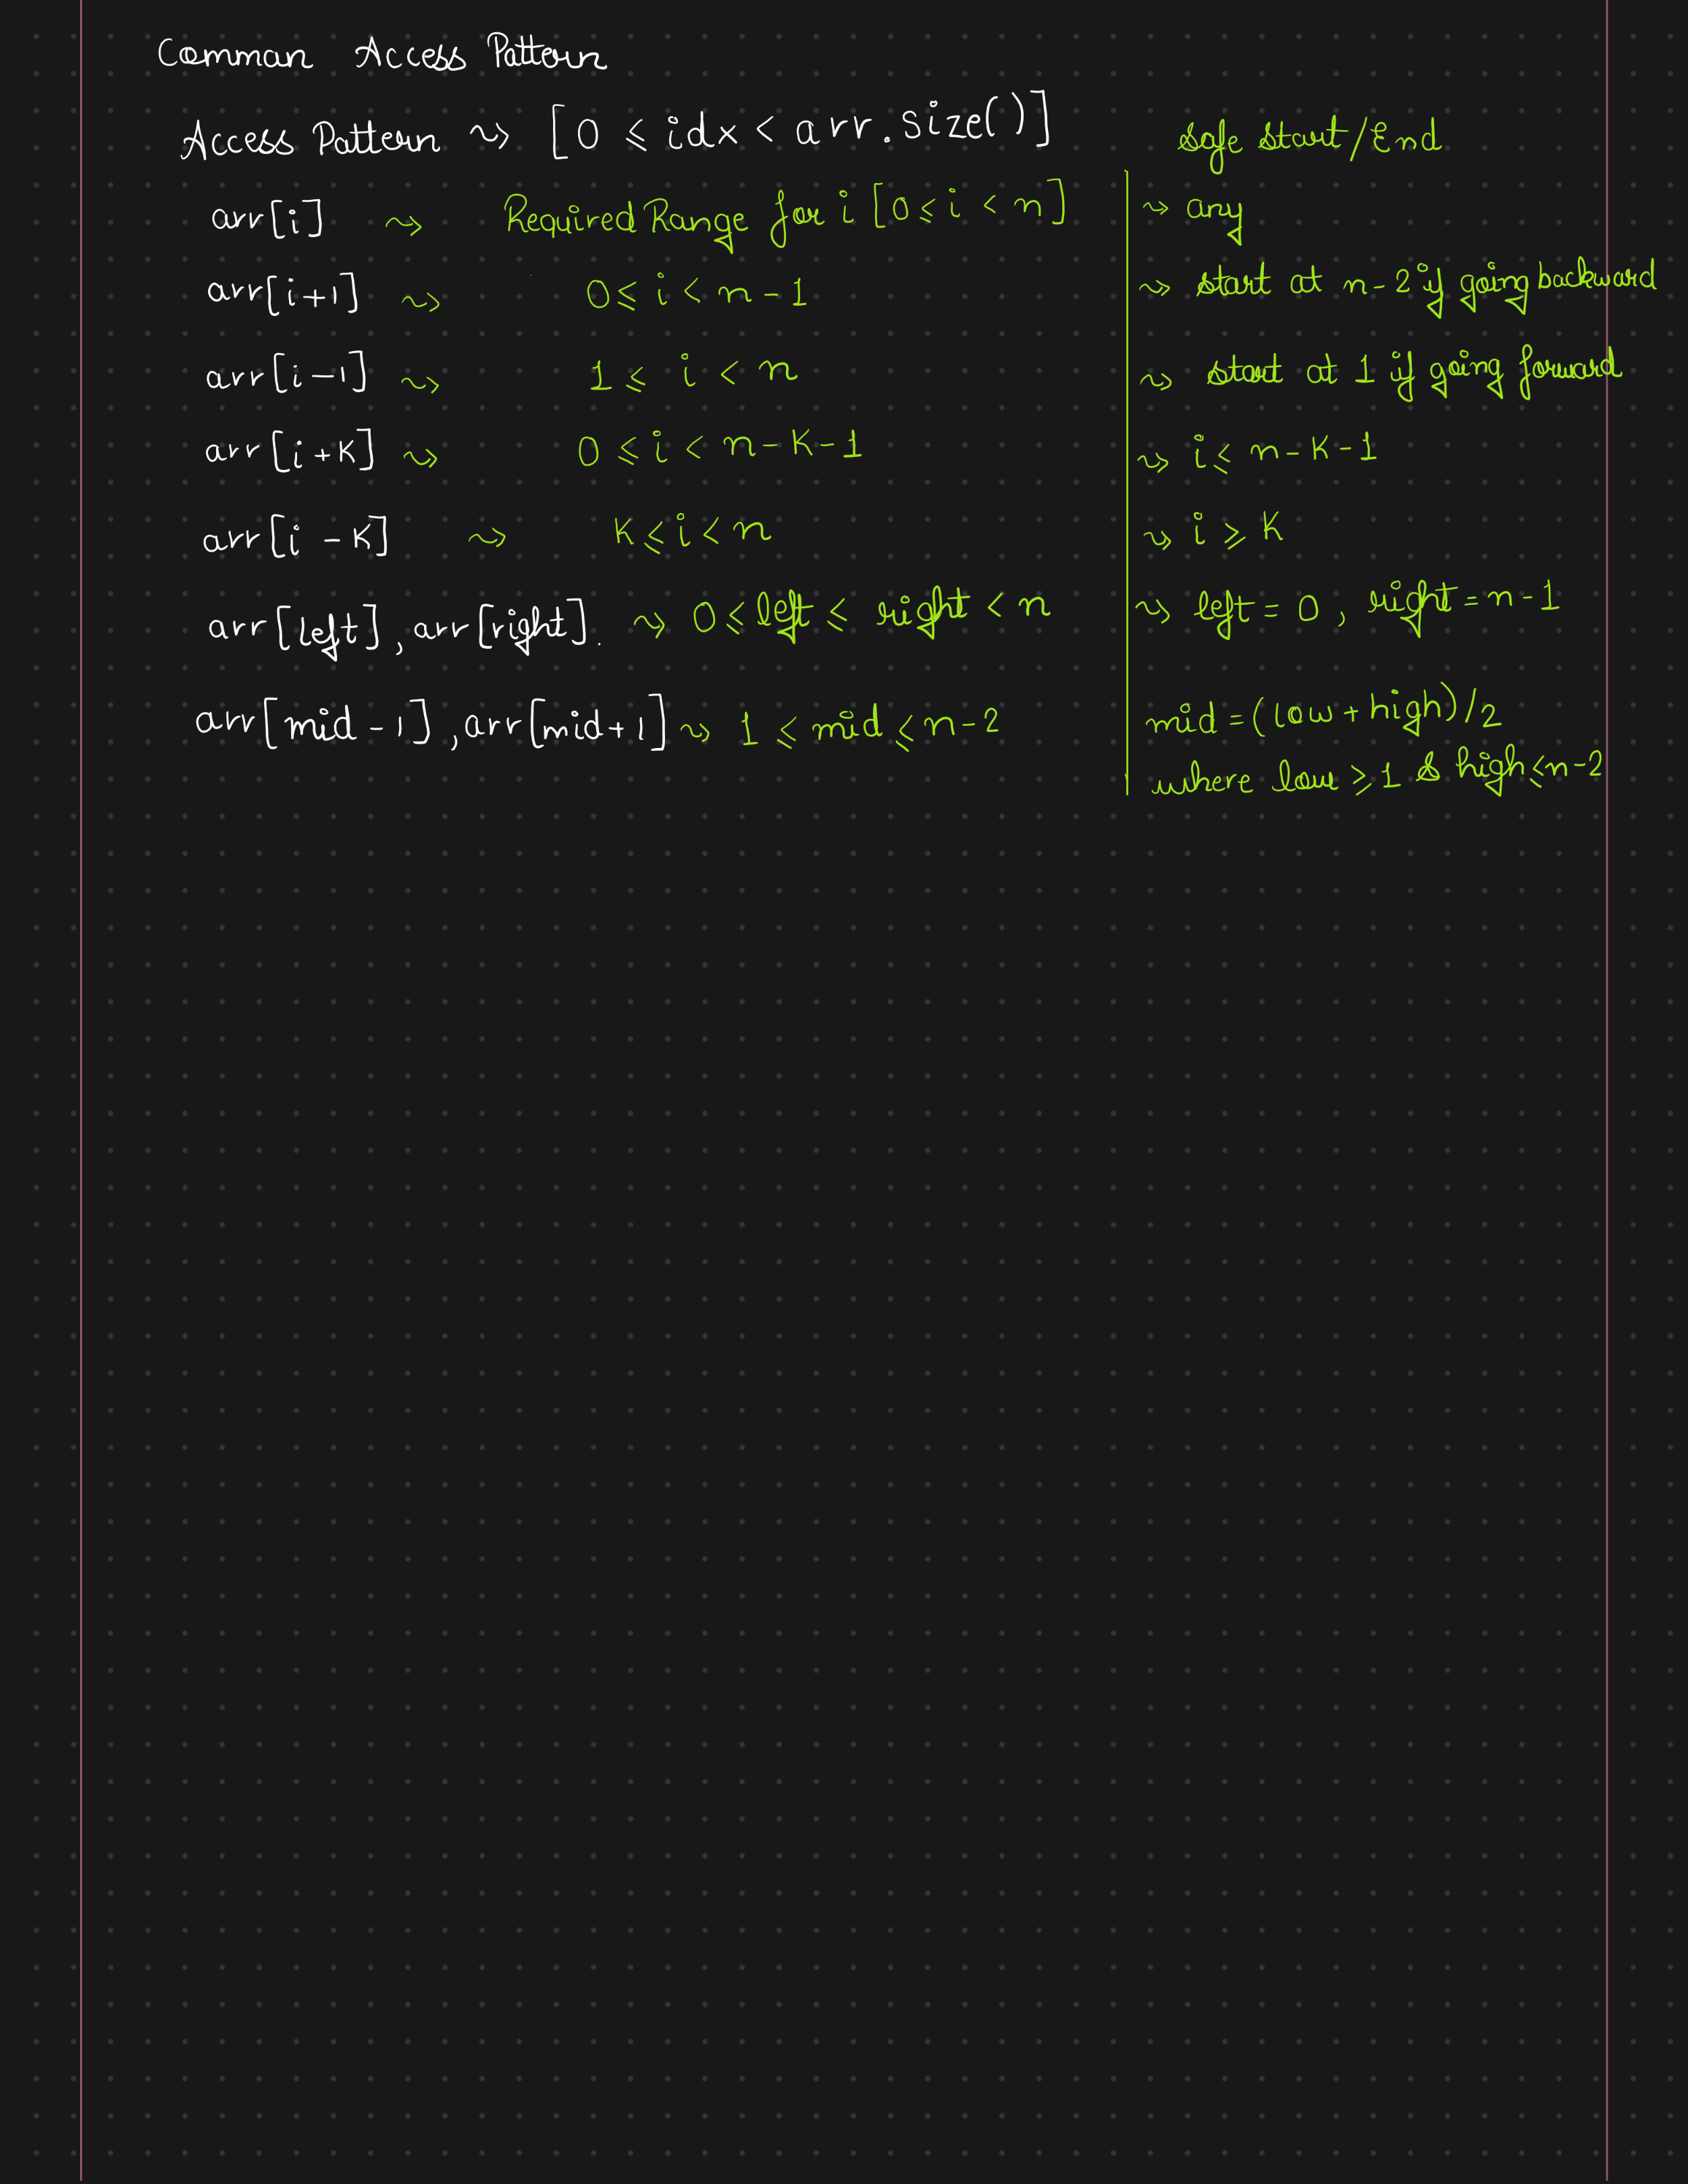 Comman Access Pattern
Access Pattern ⇝ [0 ≤ idx < arr.size()] Safe Start/End
arr[i] ⇝ Required Range for i [0 ≤ i < n] ⇝ any
arr[i+1] ⇝ 0 ≤ i < n-1 ⇝ start at n-2 if going backward
arr[i-1] ⇝ 1 ≤ i < n ⇝ start at 1 if going forward
arr[i+K] ⇝ 0 ≤ i < n-K-1 ⇝ i ≤ n-K-1
arr[i-K] ⇝ K ≤ i < n ⇝ i ≥ K
arr[left], arr[right]. ⇝ 0 ≤ left ≤ right < n ⇝ left = 0, right = n-1
arr[mid-1], arr[mid+1] ⇝ 1 ≤ mid ≤ n-2 mid = (low + high)/2
where low ≥ 1 & high ≤ n-2